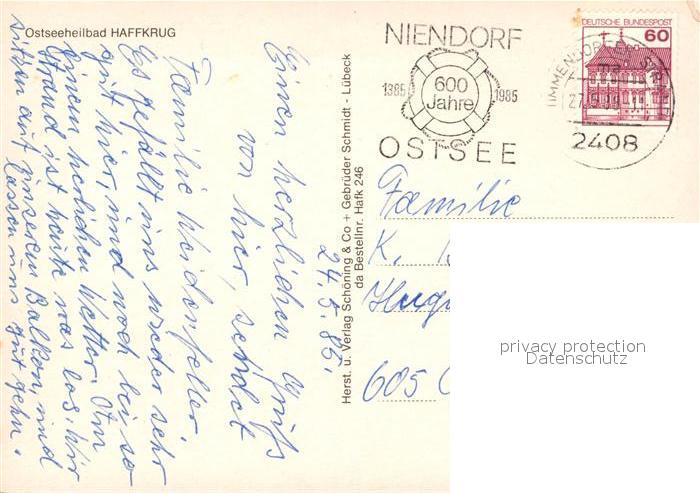 Ostseeheilbad HAFFKRUG
NIENDORF
1385 600 1985
Jahre
OSTSEE
DEUTSCHE BUNDESPOST
60
TIMMENDORFER
27.5.85
2408
24.5.85.
Einen herzlichen Gruß
von hier, sendet
Familie
Es gefällt uns wieder sehr
gut hier, und noch bei so
einem herlichen Wetter. Am
Strand ist heute was los. Wir
sitzen auf unserem Balkon, und
lassen uns gut gehn.
Herst. u. Verlag Schöning & Co + Gebrüder Schmidt - Lübeck
da Bestellnr. Hafk 246
Familie
K.
605
privacy protection
Datenschutz